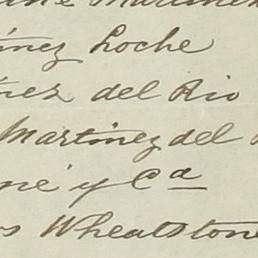 ínez Loche
ínez del Rio
Martinez del
né y Cª
s Wheatstone